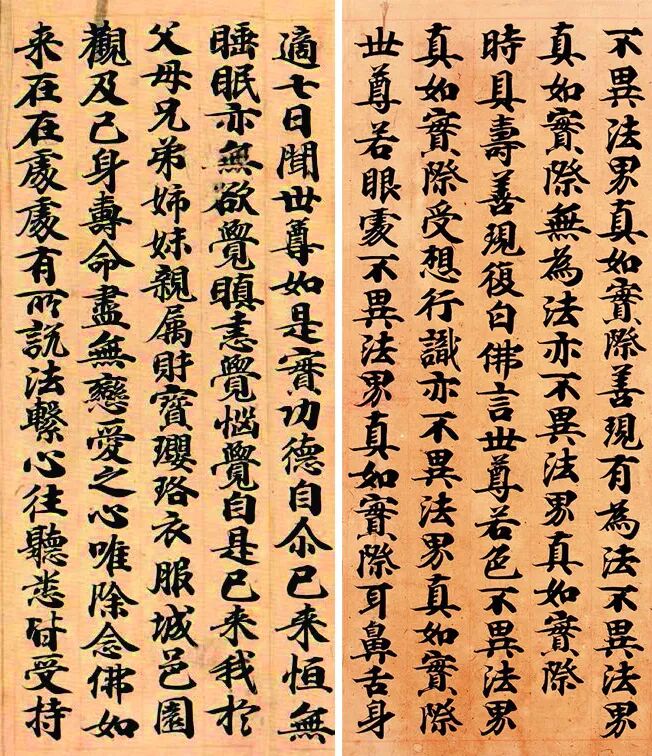 不異法界真如實際善現有為法不異法界
真如實際無為法亦不異法界真如實際
時具壽善現復白佛言世尊若色不異法界
真如實際受想行識亦不異法界真如實際
世尊若眼處不異法界真如實際耳鼻舌身
適七日聞世尊如是實功德自尒已来恒無
睡眠亦無欲覺瞋恚覺惱覺自是已来我於
父母兄弟姉妹親属財寶瓔珞衣服城邑園
觀及己身壽命盡無戀愛之心唯除念佛如
来在在處處有所說法繫心往聽悉皆受持